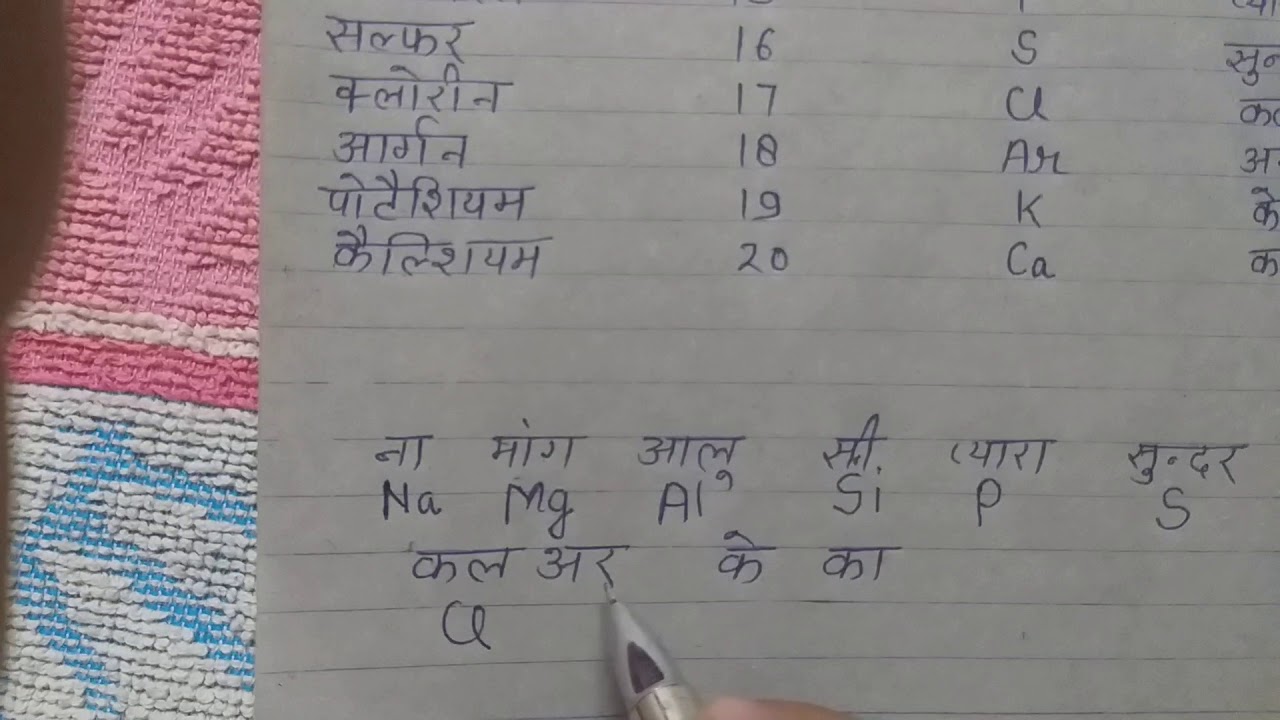 सल्फर 16 S
क्लोरीन 17 Cl
आर्गन 18 Ar
पोटैशियम 19 K के
कैल्शियम 20 Ca
ना मांग आलू सी प्यारा सुन्दर
Na Mg Al Si P S
कल अर के का
Cl